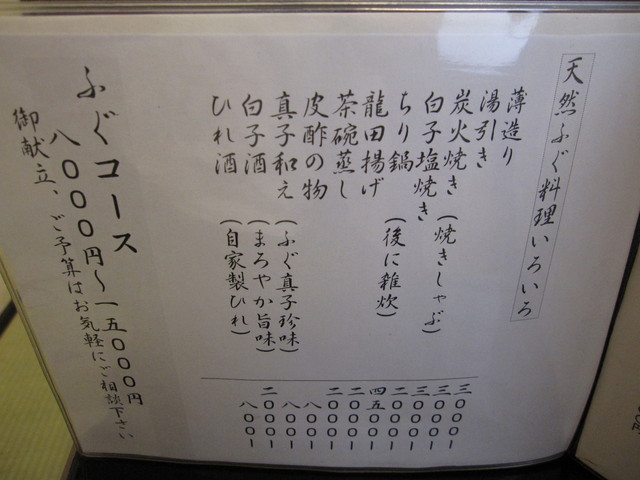 天然ふぐ料理いろいろ
薄造り 三〇〇〇ー
湯引き 三〇〇〇ー
炭火焼き（焼きしゃぶ） 三〇〇〇ー
白子塩焼き 二〇〇〇ー
ちり鍋（後に雑炊） 四五〇〇ー
龍田揚げ 二〇〇〇ー
茶碗蒸し 二〇〇〇ー
皮酢の物 八〇〇ー
真子和え（ふぐ真子珍味） 八〇〇ー
白子酒（まろやか旨味） 二〇〇〇ー
ひれ酒（自家製ひれ） 八〇〇ー
ふぐコース
八〇〇〇円～一五〇〇〇円
御献立、ご予算はお気軽にご相談下さい